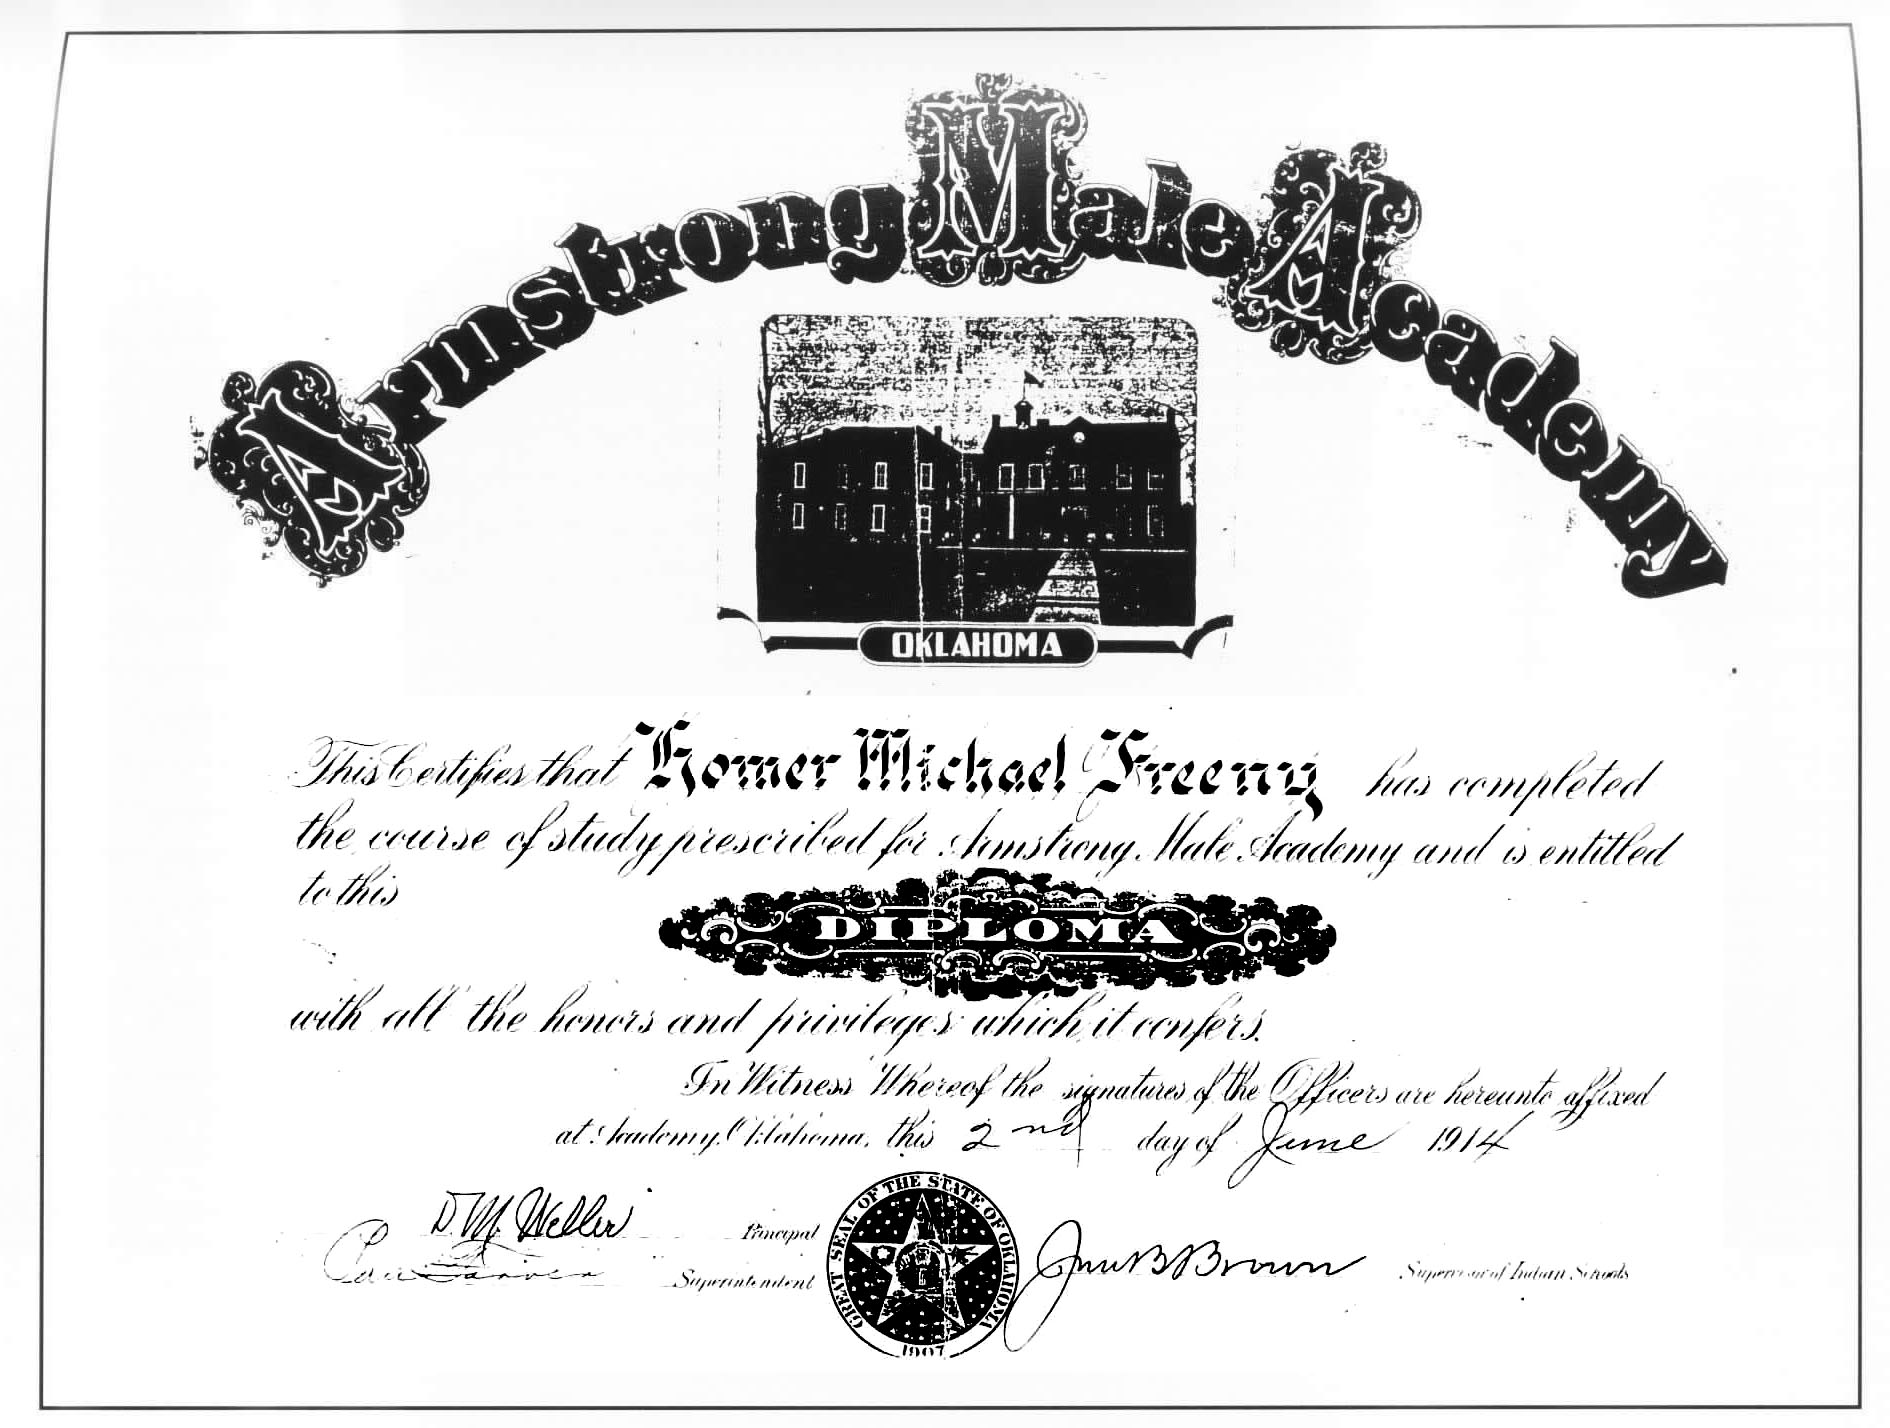 Armstrong Male Academy
OKLAHOMA
This Certifies that Homer Michael Freeny has completed
the course of study prescribed for Armstrong Male Academy and is entitled
to this
DIPLOMA
with all the honors and privileges which it confers.
In Witness Whereof the signatures of the Officers are hereunto affixed
at Academy, Oklahoma, this 2nd day of June 1914
D. M. Weller Principal
Superintendent
GREAT SEAL OF THE STATE OF OKLAHOMA
1907
Jno B Brown Supervisor of Indian Schools